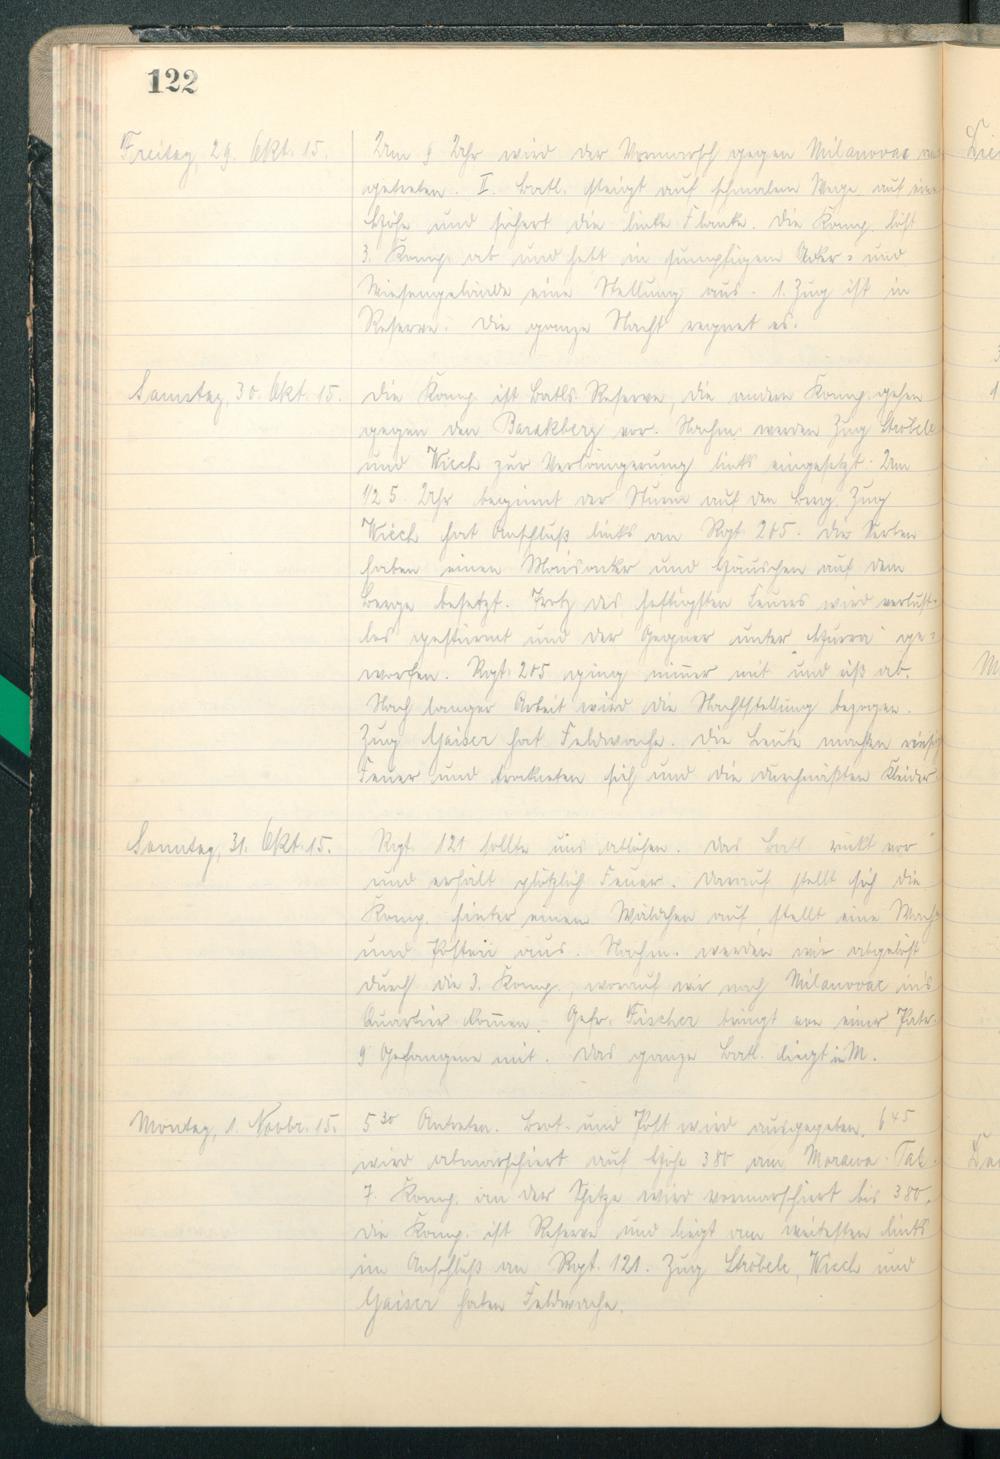 122
Freitag, 29. Okt. 15.
Um 9 Uhr wird der Vormarsch gegen Milanovac an-
getreten. II. Batl. steigt auf schmalem Wege auf eine
Höhe und sichert die linke Flanke. Die Komp. löst
3. Komp. ab und hebt in sumpfigem Acker= und
Wiesengelände eine Stellung aus. 1. Zug ist in
Reserve. Die ganze Nacht regnet es.
Samstag, 30. Okt. 15.
Die Komp. ist Batls. Reserve, die andern Komp. gehen
gegen den Barakberg vor. Nachm. werden Zug Ströbele
und Wiech zur Verlängerung links eingesetzt. Um
1/2 5 Uhr beginnt der Sturm auf den Berg. Zug
Wiech hat Anschluß links an Rgt. 205. Die Serben
haben einen Maisacker und Häuschen auf dem
Berge besetzt. Trotz des heftigsten Feuers wird verlust-
los gestürmt und der Gegner unter "Hurra" ge=
worfen. Rgt. 205 ging nimmer mit und riß ab.
Nach langer Arbeit wird die Nachtstellung bezogen.
Zug Gaiser hat Feldwache. Die Leute machten
Feuer und trockneten sich und die durchnäßten Kleider.
Sonntag, 31. Okt. 15.
Rgt. 121 sollte uns ablösen. Das Batl. rückt vor
und erhält plötzlich Feuer. Darauf stellt sich die
Komp. hinter einem Wäldchen auf, stellt eine Wache
und Posten aus. Nachm. werden wir abgelöst
durch die 3. Komp., worauf wir nach Milanovac ins
Quartier kommen. Gefr. Fischer bringt von einer Patr.
9 Gefangene mit. Das ganze Batl. liegt in M.
Montag, 1. Novbr. 15.
5 30 Antreten. Brot und Post wird ausgegeben. 6 45
wird abmarschiert auf Höhe 380 am Morawa-Tal.
7. Komp. an der Spitze wird vormarschiert bis 380.
Die Komp. ist Reserve und liegt am weitesten links
im Anschluß an Rgt. 121. Zug Ströbele, Wiech und
Gaiser haben Feldwache.